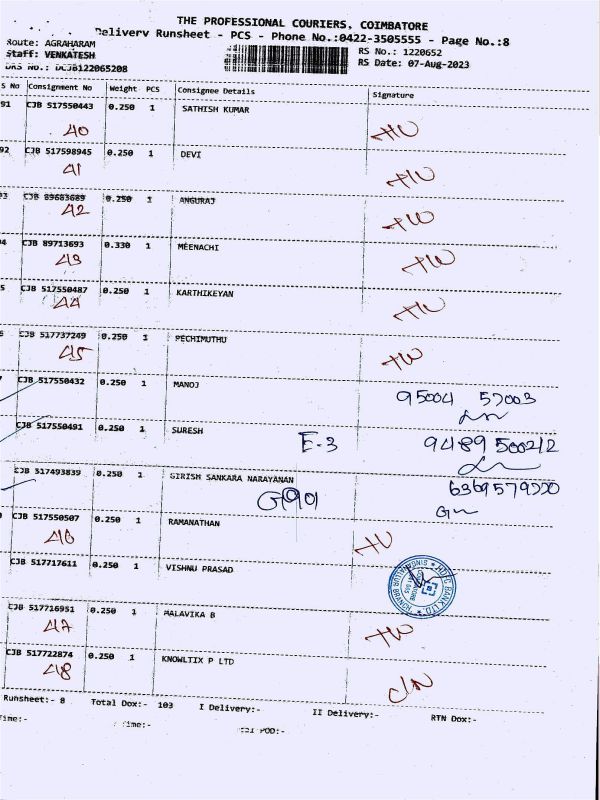 THE PROFESSIONAL COURIERS, COIMBATORE
Delivery Runsheet - PCS - Phone No.:0422-3505555 - Page No.:8
Route: AGRAHARAM
RS No.: 1220652
Staff: VENKATESH
RS Date: 07-Aug-2023
DRS No.: DCJB122065208
S No Consignment No Weight PCS Consignee Details Signature
91 CJB 517550443 0.250 1 SATHISH KUMAR
40
92 CJB 517598945 0.250 1 DEVI
41
93 CJB 89683689 0.250 1 ANGURAJ
42
94 CJB 89713693 0.330 1 MEENACHI
43
5 CJB 517550487 0.250 1 KARTHIKEYAN
44
6 CJB 517737249 0.250 1 PECHIMUTHU
45
CJB 517550432 0.250 1 MANOJ
95004 57003
CJB 517550491 0.250 1 SURESH
E-3 9489500212
CJB 517493839 0.250 1 GIRISH SANKARA NARAYANAN
G901
CJB 517550507 0.250 1 RAMANATHAN
46
CJB 517717611 0.250 1 VISHNU PRASAD
HDFC BANK LTD.
CJB 517716951 0.250 1 MALAVIKA B
47
CJB 517722874 0.250 1 KNOWLTIX P LTD
48
Runsheet:- 8 Total Dox:- 103 I Delivery:- II Delivery:- RTN Dox:-
Time:- Time:- POD:-